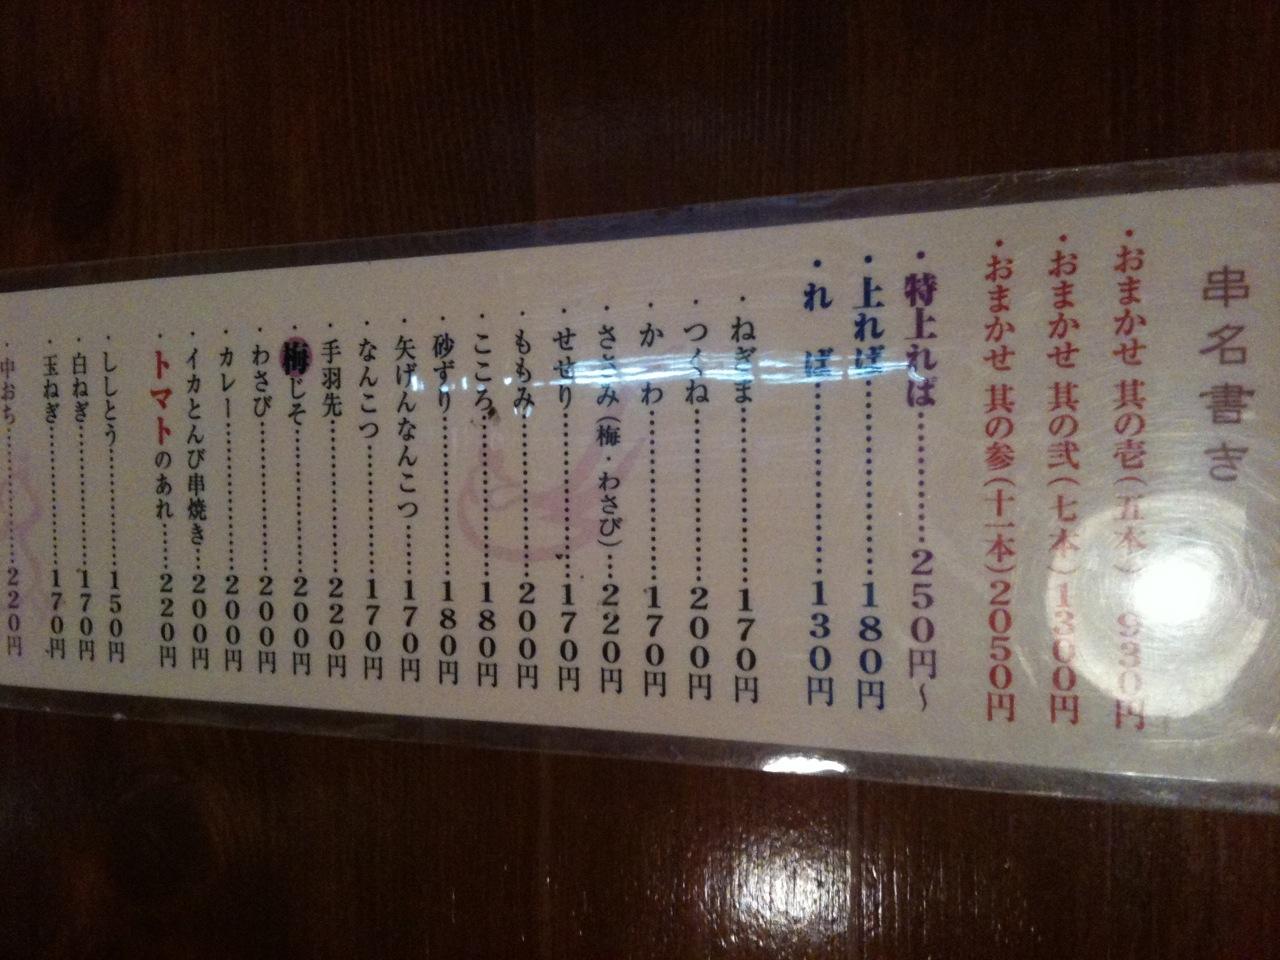 串名書き
・おまかせ 其の壱(五本) 930円
・おまかせ 其の弐(七本)1300円
・おまかせ 其の参(十一本)2050円
・特上ればぁ…………250円~
・上ればぁ…………180円
・れ ば…………130円
・ねぎま…………170円
・つくね…………200円
・か わ…………170円
・ささみ(梅・わさび)…220円
・せせり…………170円
・ももみ…………200円
・こころ…………180円
・砂ずり…………180円
・矢げんなんこつ……170円
・なんこつ…………170円
・手羽先…………220円
・梅じそ…………200円
・わさび…………200円
・カレー…………200円
・イカとんび串焼き……200円
・トマトのあれ……220円
・ししとう…………150円
・白ねぎ…………170円
・玉ねぎ…………170円
・中おち…………220円